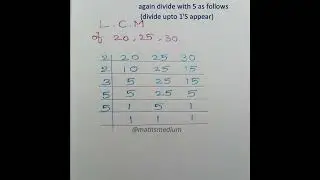 again divide with 5 as follows
(divide upto 1'S appear)
L.C.M
of 20,25,30.
2 20 25 30
2 10 25 15
3 5 25 15
5 5 25 5
5 1 5 1
1 1 1
@mathsmedium